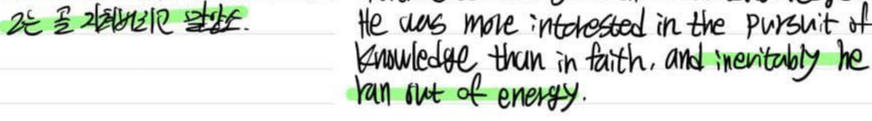 그는 곧 지쳐버리고 말았소.
He was more interested in the pursuit of
knowledge than in faith, and inevitably he
ran out of energy.